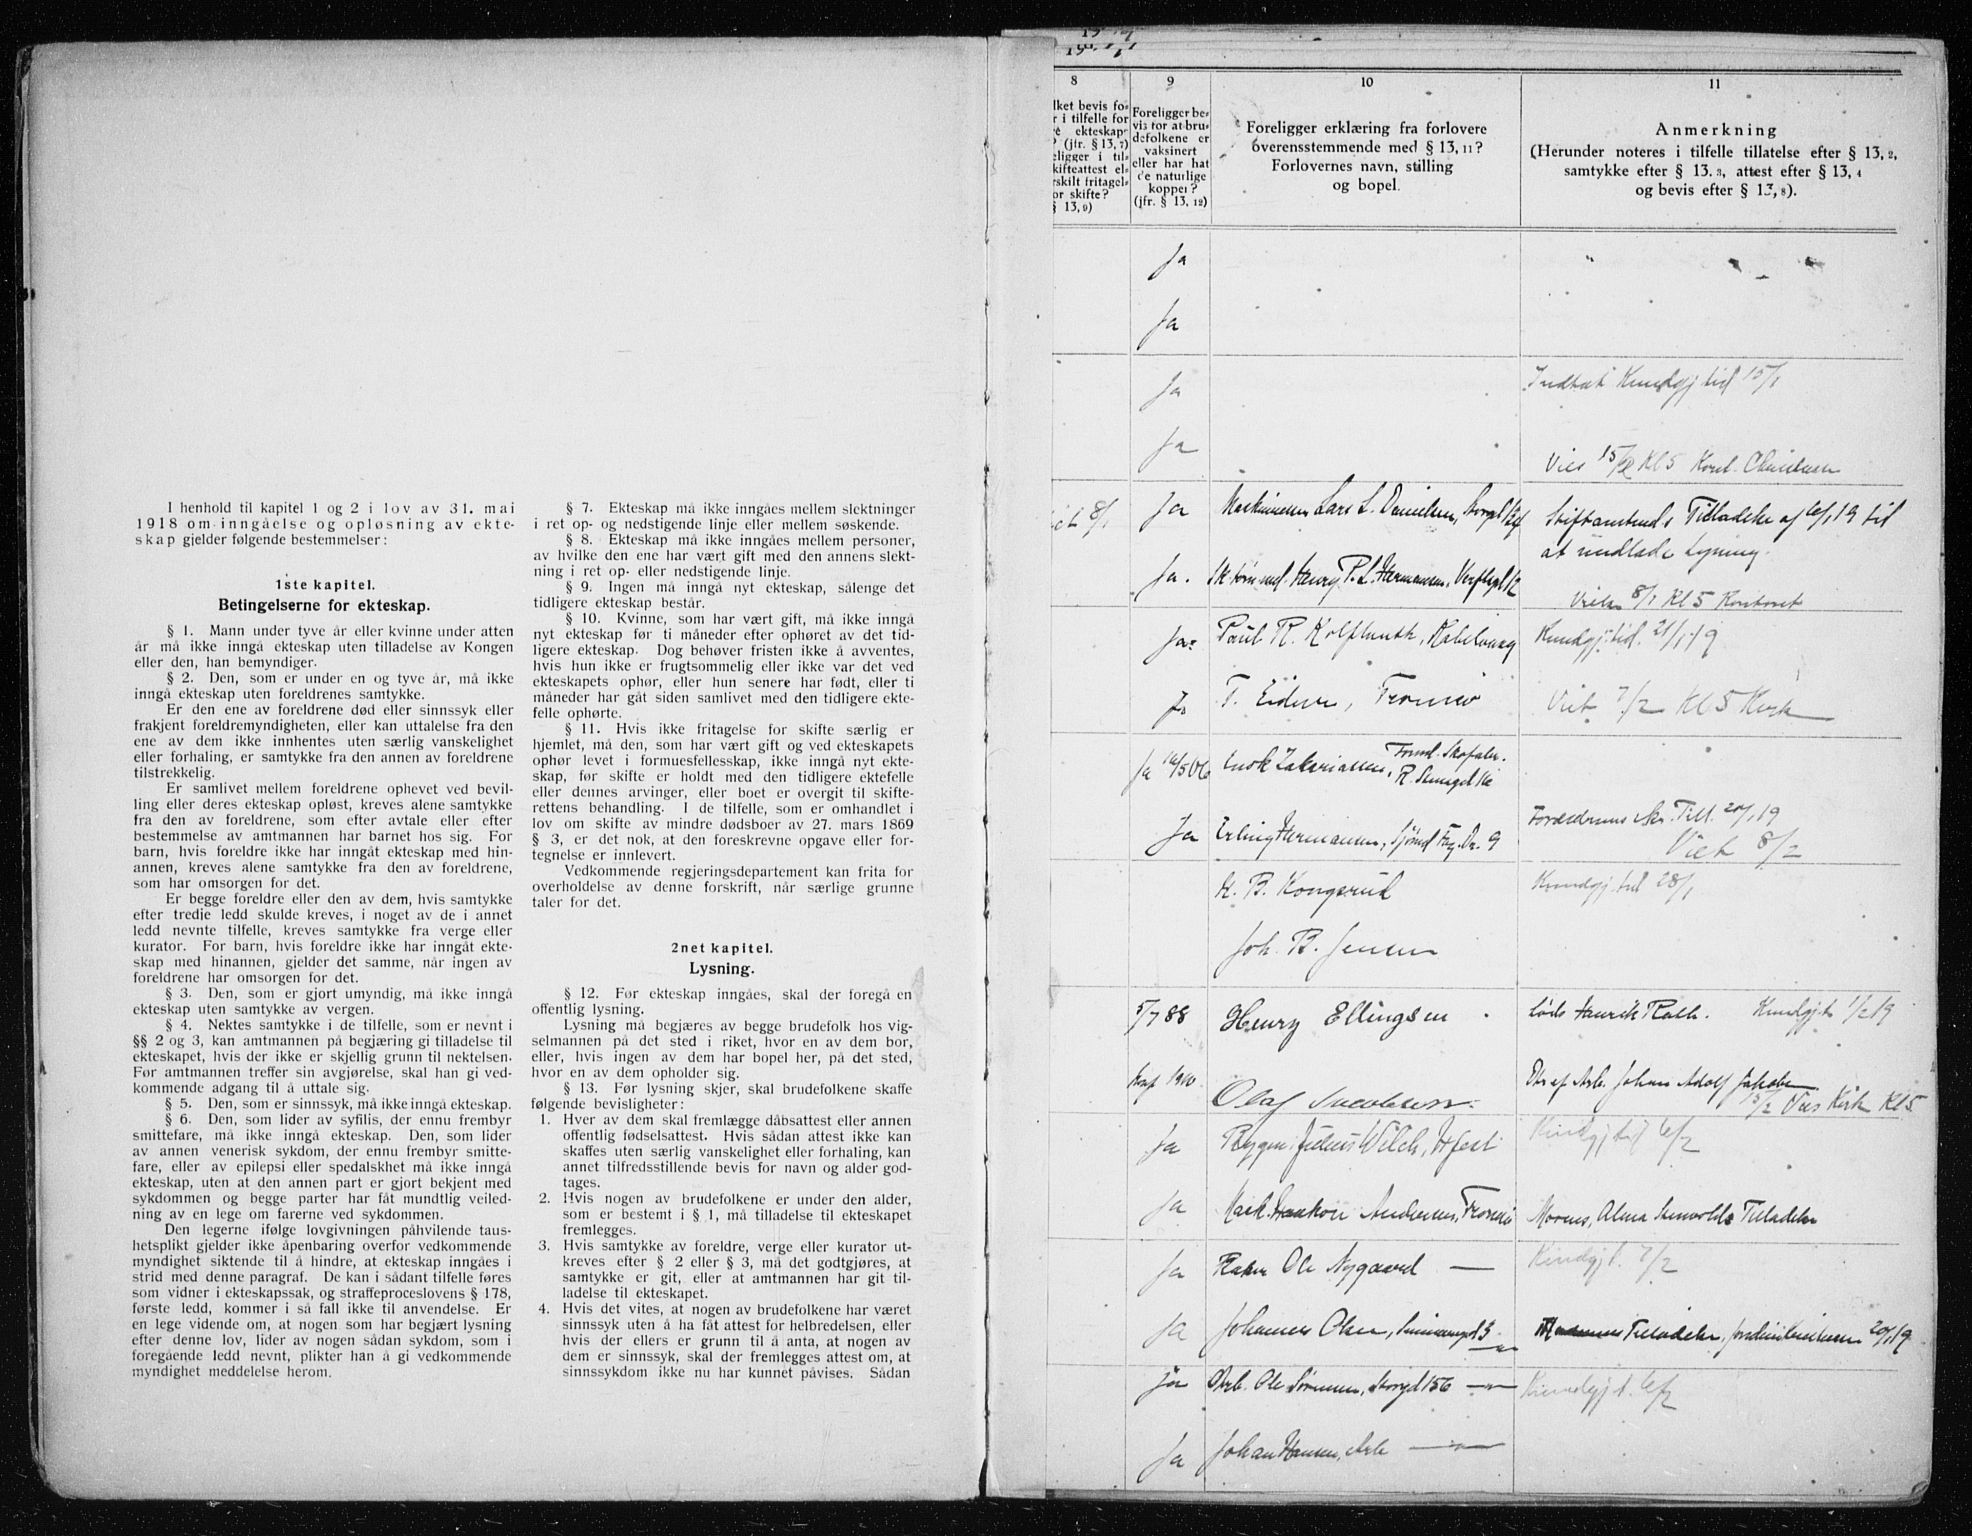 I henhold til kapitel 1 og 2 i lov av 31. mai
1918 om inngåelse og opløsning av ekte-
skap gjelder følgende bestemmelser:
1ste kapitel.
Betingelserne for ekteskap.
§ 1. Mann under tyve år eller kvinne under atten
år må ikke inngå ekteskap uten tilladelse av Kongen
eller den, han bemyndiger.
§ 2. Den, som er under en og tyve år, må ikke
inngå ekteskap uten foreldrenes samtykke.
Er den ene av foreldrene død eller sinnssyk eller
frakjent foreldremyndigheten, eller kan uttalelse fra den
ene av dem ikke innhentes uten særlig vanskelighet
eller forhaling, er samtykke fra den annen av foreldrene
tilstrekkelig.
Er samlivet mellem foreldrene ophevet ved bevil-
ling eller deres ekteskap opløst, kreves alene samtykke
fra den av foreldrene, som efter avtale eller efter
bestemmelse av amtmannen har barnet hos sig. For
barn, hvis foreldre ikke har inngåt ekteskap med hin-
annen, kreves alene samtykke fra den av foreldrene,
som har omsorgen for det.
Er begge foreldre eller den av dem, hvis samtykke
efter tredje ledd skulde kreves, i noget av de i annet
ledd nevnte tilfelle, kreves samtykke fra verge eller
kurator. For barn, hvis foreldre ikke har inngåt ekte-
skap med hinannen, gjelder det samme, når ingen av
foreldrene har omsorgen for det.
§ 3. Den, som er gjort umyndig, må ikke inngå
ekteskap uten samtykke av vergen.
§ 4. Nektes samtykke i de tilfelle, som er nevnt i
§§ 2 og 3, kan amtmannen på begjæring gi tilladelse til
ekteskapet, hvis der ikke er skjellig grunn til nektelsen.
Før amtmannen treffer sin avgjørelse, skal han gi ved-
kommende adgang til å uttale sig.
§ 5. Den, som er sinnssyk, må ikke inngå ekteskap.
§ 6. Den, som lider av syfilis, der ennu frembyr
smittefare, må ikke inngå ekteskap. Den, som lider
av annen venerisk sykdom, der ennu frembyr smitte-
fare, eller av epilepsi eller spedalskhet må ikke inngå
ekteskap, uten at den annen part er gjort bekjent med
sykdommen og begge parter har fåt mundtlig veiled-
ning av en lege om farerne ved sykdommen.
Den legerne ifølge lovgivningen påhvilende taus-
hetsplikt gjelder ikke åpenbaring overfor vedkommende
myndighet siktende til å hindre, at ekteskap inngåes i
strid med denne paragraf. De kan i sådant tilfelle føres
som vidner i ekteskapssak, og straffeproceslovens § 178,
første ledd, kommer i så fall ikke til anvendelse. Er
en lege vidende om, at nogen som har begjært lysning
efter denne lov, lider av nogen sådan sykdom, som i
foregående ledd nevnt, plikter han å gi vedkommende
myndighet meddelelse herom.
§ 7. Ekteskap må ikke inngåes mellem slektninger
i ret op- og nedstigende linje eller mellem søskende.
§ 8. Ekteskap må ikke inngåes mellem personer,
av hvilke den ene har vært gift med den annens slekt-
ning i ret op- eller nedstigende linje.
§ 9. Ingen må inngå nyt ekteskap, sålenge det
tidligere ekteskap består.
§ 10. Kvinne, som har vært gift, må ikke inngå
nyt ekteskap før ti måneder efter ophøret av det tid-
ligere ekteskap. Dog behøver fristen ikke å avventes,
hvis hun ikke er frugtsommelig eller ikke var det ved
ekteskapets ophør, eller hun senere har født, eller ti
måneder har gåt siden samlivet med den tidligere ekte-
felle ophørte.
§ 11. Hvis ikke fritagelse for skifte særlig er
hjemlet, må den, som har vært gift og ved ekteskapets
ophør levet i formuesfellesskap, ikke inngå nyt ekte-
skap, før skifte er holdt med den tidligere ektefelle
eller dennes arvinger, eller boet er overgit til skifte-
rettens behandling. I de tilfelle, som er omhandlet i
lov om skifte av mindre dødsboer av 27. mars 1869
§ 3, er det nok, at den foreskrevne opgave eller for-
tegnelse er innlevert.
Vedkommende regjeringsdepartement kan frita for
overholdelse av denne forskrift, når særlige grunne
taler for det.
2net kapitel.
Lysning.
§ 12. Før ekteskap inngåes, skal der foregå en
offentlig lysning.
Lysning må begjæres av begge brudefolk hos vig-
selmannen på det sted i riket, hvor en av dem bor,
eller, hvis ingen av dem har bopel her, på det sted,
hvor en av dem opholder sig.
§ 13. Før lysning skjer, skal brudefolkene skaffe
følgende bevisligheter:
1. Hver av dem skal fremlægge dåbsattest eller annen
offentlig fødselsattest. Hvis sådan attest ikke kan
skaffes uten særlig vanskelighet eller forhaling, kan
annet tilfredsstillende bevis for navn og alder god-
tages.
2. Hvis nogen av brudefolkene er under den alder,
som er bestemt i § 1, må tilladelse til ekteskapet
fremlegges.
3. Hvis samtykke av foreldre, verge eller kurator ut-
kreves efter § 2 eller § 3, må det godtgjøres, at
samtykke er git, eller at amtmannen har git til-
ladelse til ekteskapet.
4. Hvis det vites, at nogen av brudefolkene har været
sinnssyk uten å ha fåt attest for helbredelsen, eller
hvis der ellers er grunn til å anta, at nogen av
dem er sinnssyk, skal der fremlegges attest om, at
sinnssykdom ikke nu har kunnet påvises. Sådan
8
lket bevis fo-
r i tilfelle for
e ekteskap
? (jfr. § 13, 7)
eligger i til-
kifteattest el-
rskilt fritagel-
or skifte?
§ 13, 9)
9
Foreligger be-
vis for at bru-
defolkene er
vaksinert
eller har hat
de naturlige
kopper?
(jfr. § 13, 12)
10
Foreligger erklæring fra forlovere
overensstemmende med § 13, 11?
Forlovernes navn, stilling
og bopel.
11
Anmerkning
(Herunder noteres i tilfelle tillatelse efter § 13, 2,
samtykke efter § 13. 3, attest efter § 13, 4
og bevis efter § 13, 8).
Ja
Ja
Ja Kundgj tid 15/1
Ja Vies Kl 5
8/1 Ja Lars L. Danielsen, Stiftamtmds Tilladelse af 6/1 19 til
at undlade Lysning.
Ja. Henry P. L. Hermansen,
8/1 Kl 5 Kontoret
Ja Paul R. Kabelvaag Kundgj. tid. 21/1 19
Ja T. Tromsø Viet 7/2 Kl 5 Kirk
Ja Enok Zakariassen,
Ja Erling Hermansen, Till. 20/1 19
Viet 8/2
K. B. Kongsrud Kundgj. tid 28/1
Joh. B. Jensen
5/7 88 Henry Ellingsen Henrik Kundgj. t. 1/2 19
1910 Olaf Jacobsen. Dtr af Arb. Johan Adolf Jakobs
15/2 Vies Kirk Kl 5
Ja Julius Kundgj tid 6/2
Ja Haakon Andersen, Tromsø Alma Tilladelse
Ja Ole Nygaard — Kundgj t. 7/2
Ja Johannes Olsen, Tilladelse, 20/1 19
Ja Arb. Ole Storgd 156 —"— Kundgj t. 6/2
Ja Johan Hansen, Arb —"—